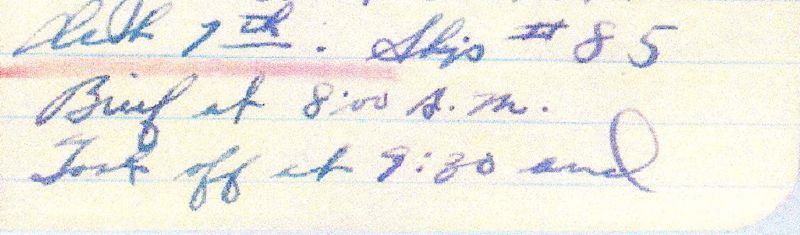 7th. Ship #85
Brief at 8:00 A.M.
Took off at 9:30 and